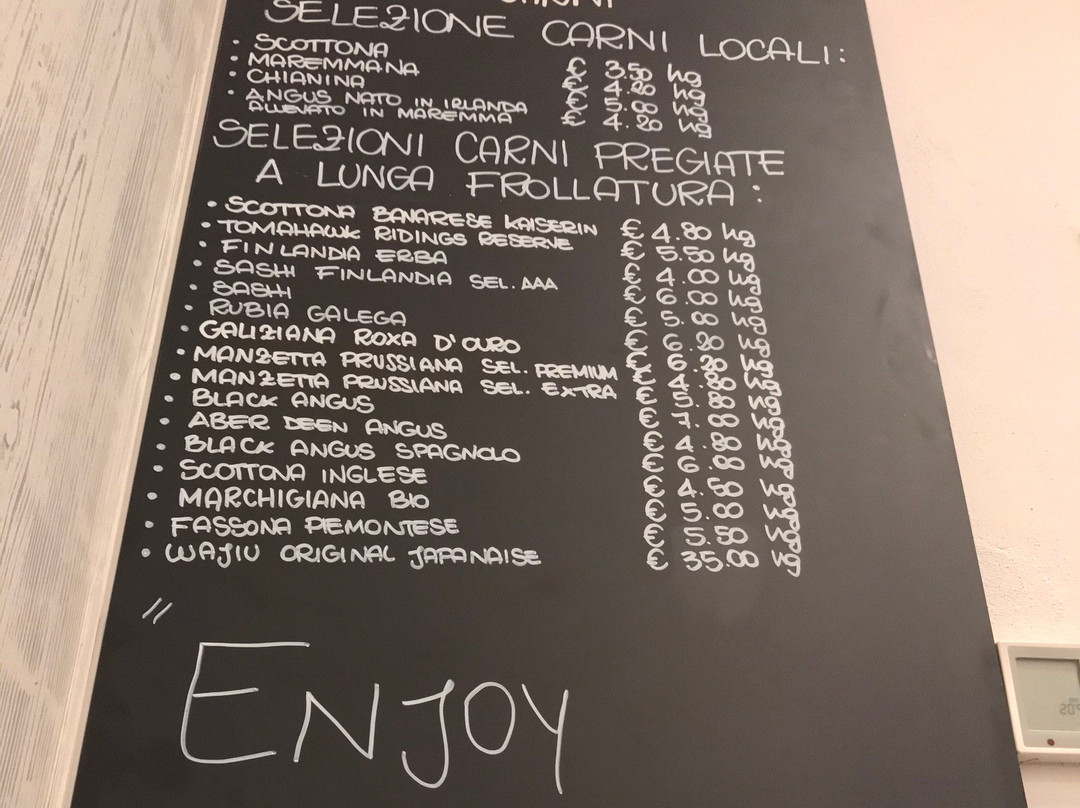 SELEZIONE CARNI LOCALI:
• SCOTTONA € 3.50 hg
• MAREMMANA € 4.20 hg
• CHIANINA € 5.00 hg
• ANGUS NATO IN IRLANDA
ALLEVATO IN MAREMMA € 4.20 hg
SELEZIONI CARNI PREGIATE
A LUNGA FROLLATURA:
• SCOTTONA BAVARESE KAISERIN € 4.80 hg
• TOMAHAWK RIDINGS RESERVE € 5.50 hg
• FINLANDIA ERBA € 4.00 hg
• SASHI FINLANDIA SEL. AAA € 6.00 hg
• SASHI € 5.00 hg
• RUBIA GALEGA € 6.20 hg
• GALIZIANA ROXA D'OURO € 6.20 hg
• MANZETTA PRUSSIANA SEL. PREMIUM € 4.80 hg
• MANZETTA PRUSSIANA SEL. EXTRA € 5.80 hg
• BLACK ANGUS € hg
• ABER DEEN ANGUS € 4.80 hg
• BLACK ANGUS SPAGNOLO € 6.00 hg
• SCOTTONA INGLESE € 4.50 hg
• MARCHIGIANA BIO € 5.00 hg
• FASSONA PIEMONTESE € 5.50 hg
• WAJIU ORIGINAL JAPANAISE € 35.00 hg
"
ENJOY